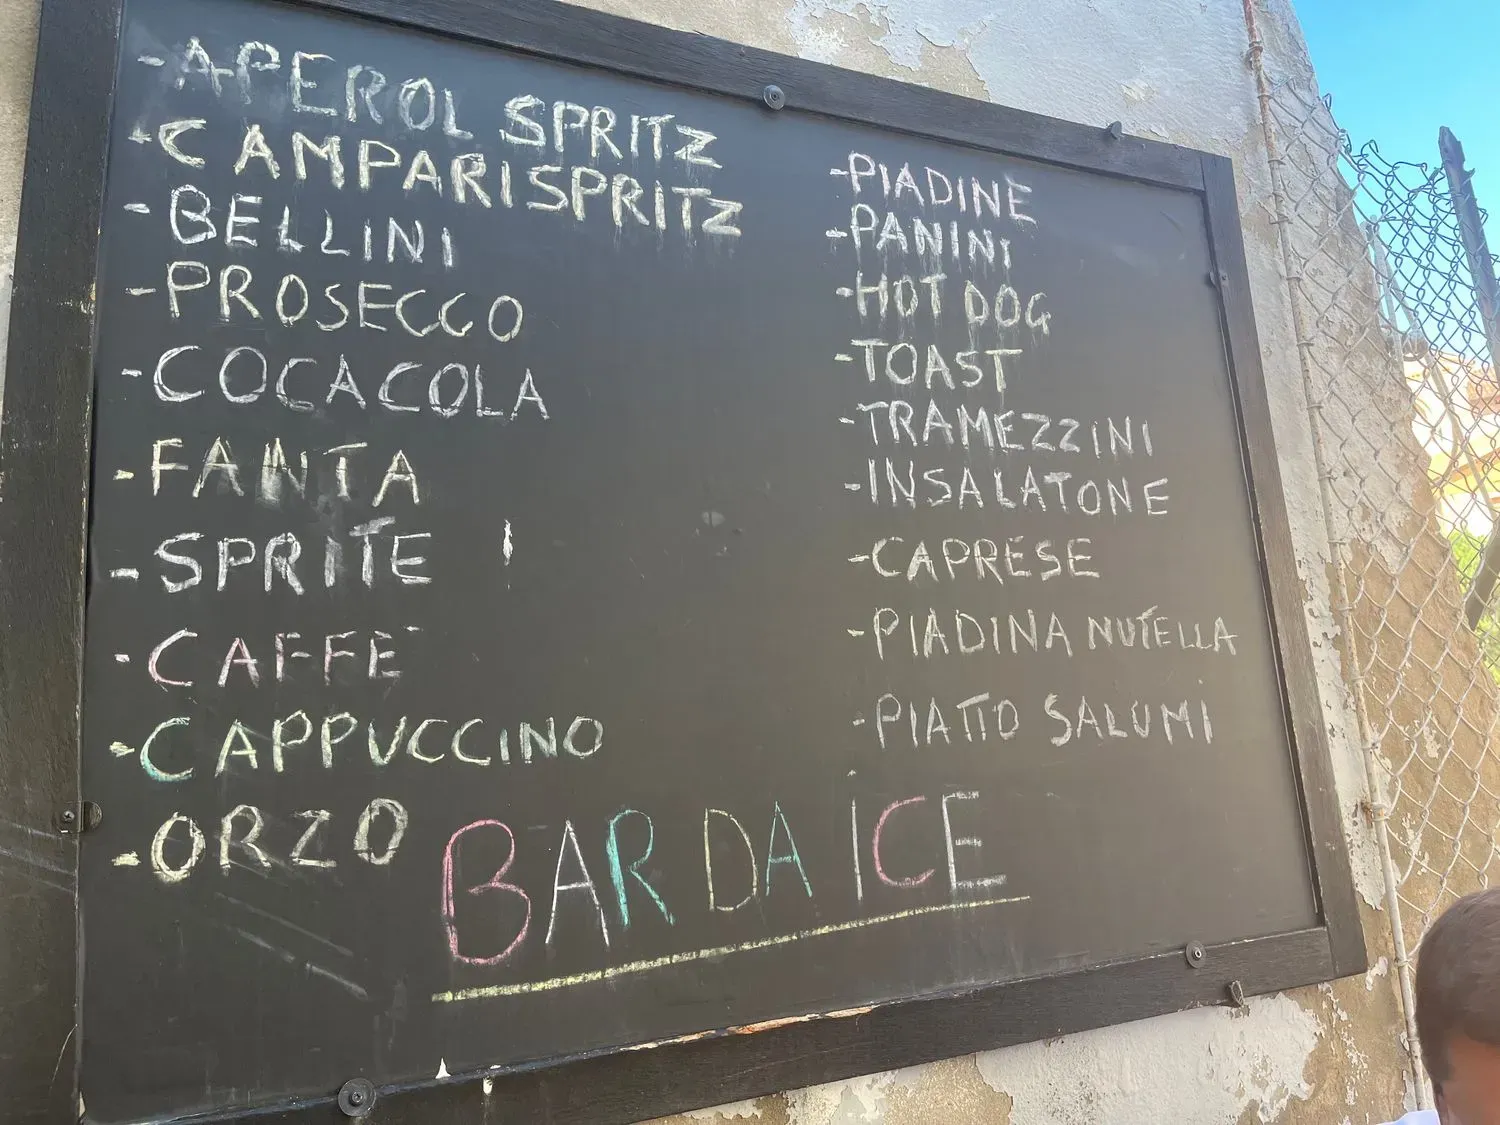 -APEROL SPRITZ
-CAMPARI SPRITZ
-BELLINI
-PROSECCO
-COCACOLA
-FANTA
-SPRITE
-CAFFE`
-CAPPUCCINO
-ORZO
-PIADINE
-PANINI
-HOT DOG
-TOAST
-TRAMEZZINI
-INSALATONE
-CAPRESE
-PIADINA NUTELLA
-PIATTO SALUMI
BAR DA ICE